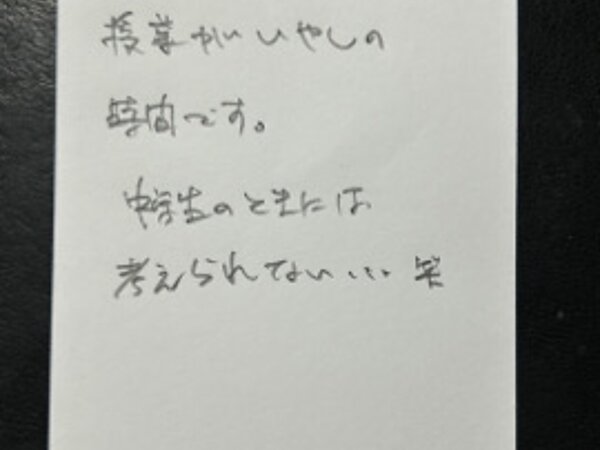 授業がいやしの
時間です。
中学生のときには
考えられない... 笑